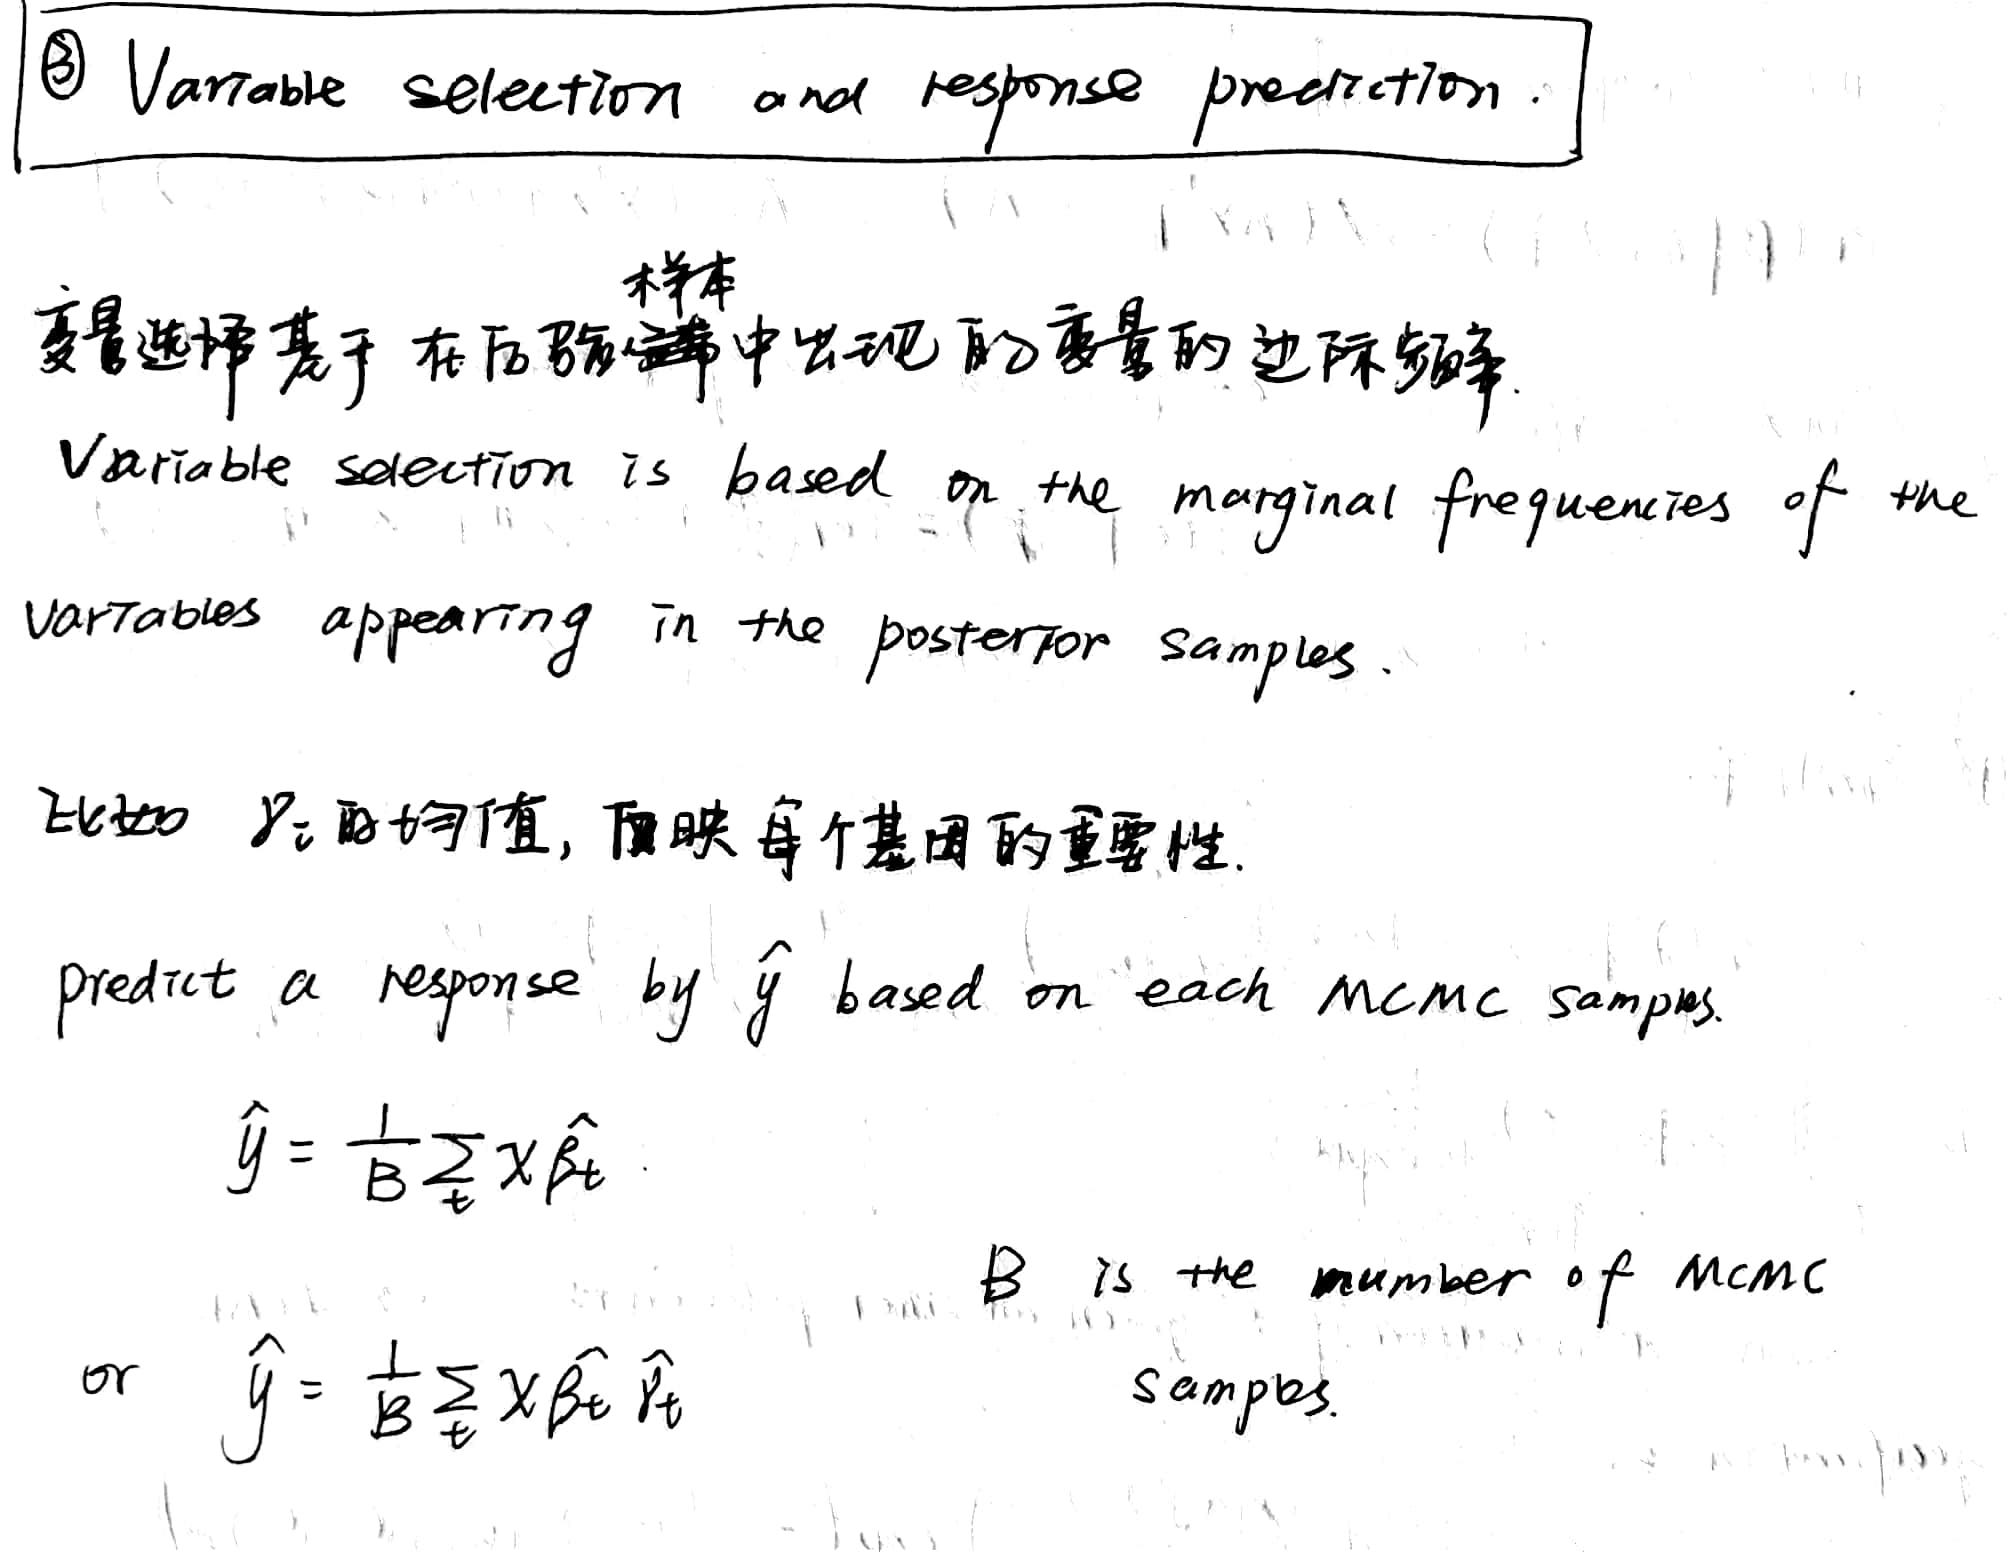 ③ Variable selection and response prediction.
变量选择基于在后验样本中出现的变量的边际频率.
Variable selection is based on the marginal frequencies of the
variables appearing in the posterior samples.
比如 γᵢ 的均值, 反映每个基因的重要性.
predict a response by ŷ based on each MCMC samples.
ŷ = 1/B Σ_t X β̂_t.
B is the number of MCMC
or ŷ = 1/B Σ_t X β̂_t γ̂_t
samples.